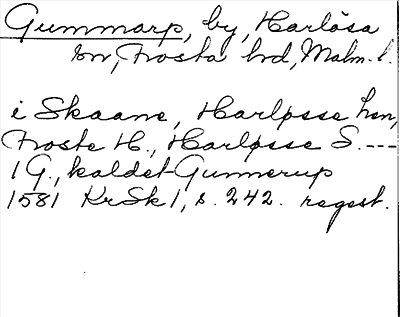 Gummarp, by, Harlösa
sn, Frosta hd, Malm. l.
i Skaane, Harløsse Len,
Froste H., Harløsse S. ---
1 G., kaldet Gunnerup
1581 KrSk 1, s. 242. regest.